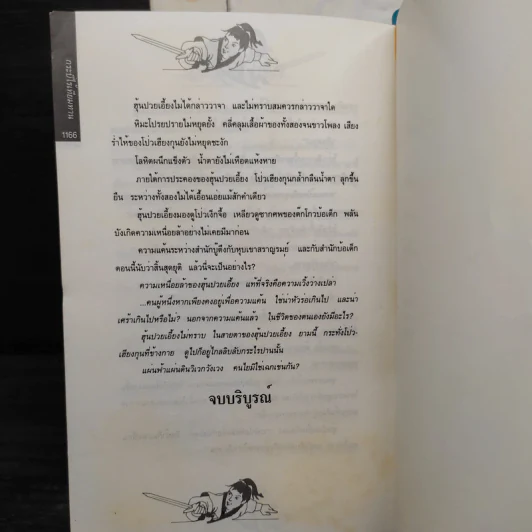 กระบี่ไม้ต้อมทาน
1166
ฮุ้นปวยเอี้ยงไม่ได้กล่าววาจา และไม่ทราบสมควรกล่าววาจาใด
หิมะโปรยปรายไม่หยุดยั้ง คลี่คลุมเสื้อผ้าของทั้งสองจนขาวโพลง เสียง
ร่ำไห้ของโปวเฮียงกุนยังไม่หยุดชะงัก
โลหิตผนึกแข็งตัว น้ำตายังไม่เหือดแห้งหาย
ภายใต้การประคองของฮุ้นปวยเอี้ยง โปวเฮียงกุนกล้ำกลืนน้ำตา ลุกขึ้น
ยืน ระหว่างทั้งสองไม่ได้เอื้อนเอ่ยแม้สักคำเดียว
ฮุ้นปวยเอี้ยงมองดูโปวเง็กจื้อ เหลียวดูซากศพของต๊กโกวบ้อเต๊ก พลัน
บังเกิดความเหนื่อยล้าอย่างไม่เคยมีมาก่อน
ความแค้นระหว่างสำนักบู๊ตึงกับหุบเขาสราญรมย์ และกับสำนักบ้อเต๊ก
ตอนนี้นับว่าสิ้นสุดยุติ แล้วนี่จะเป็นอย่างไร?
ความเหนื่อยล้าของฮุ้นปวยเอี้ยง แท้ที่จริงคือความเวิ้งว่างเปล่า
...คนผู้หนึ่งหากเพียงคงอยู่เพื่อความแค้น ใช่น่าหัวร่อเกินไป และน่า
เศร้าเกินไปหรือไม่? นอกจากความแค้นแล้ว ในชีวิตของตนเองยังมีอะไร?
ฮุ้นปวยเอี้ยงไม่ทราบ ในสายตาของฮุ้นปวยเอี้ยง ยามนี้ กระทั่งโปว-
เฮียงกุนที่ข้างกาย ดูไปก็อยู่ไกลลิบลับกระไรปานนั้น
แผ่นฟ้าแผ่นดินวิเวกวังเวง คนใยมิใช่เฉกเช่นกัน?
จบบริบูรณ์